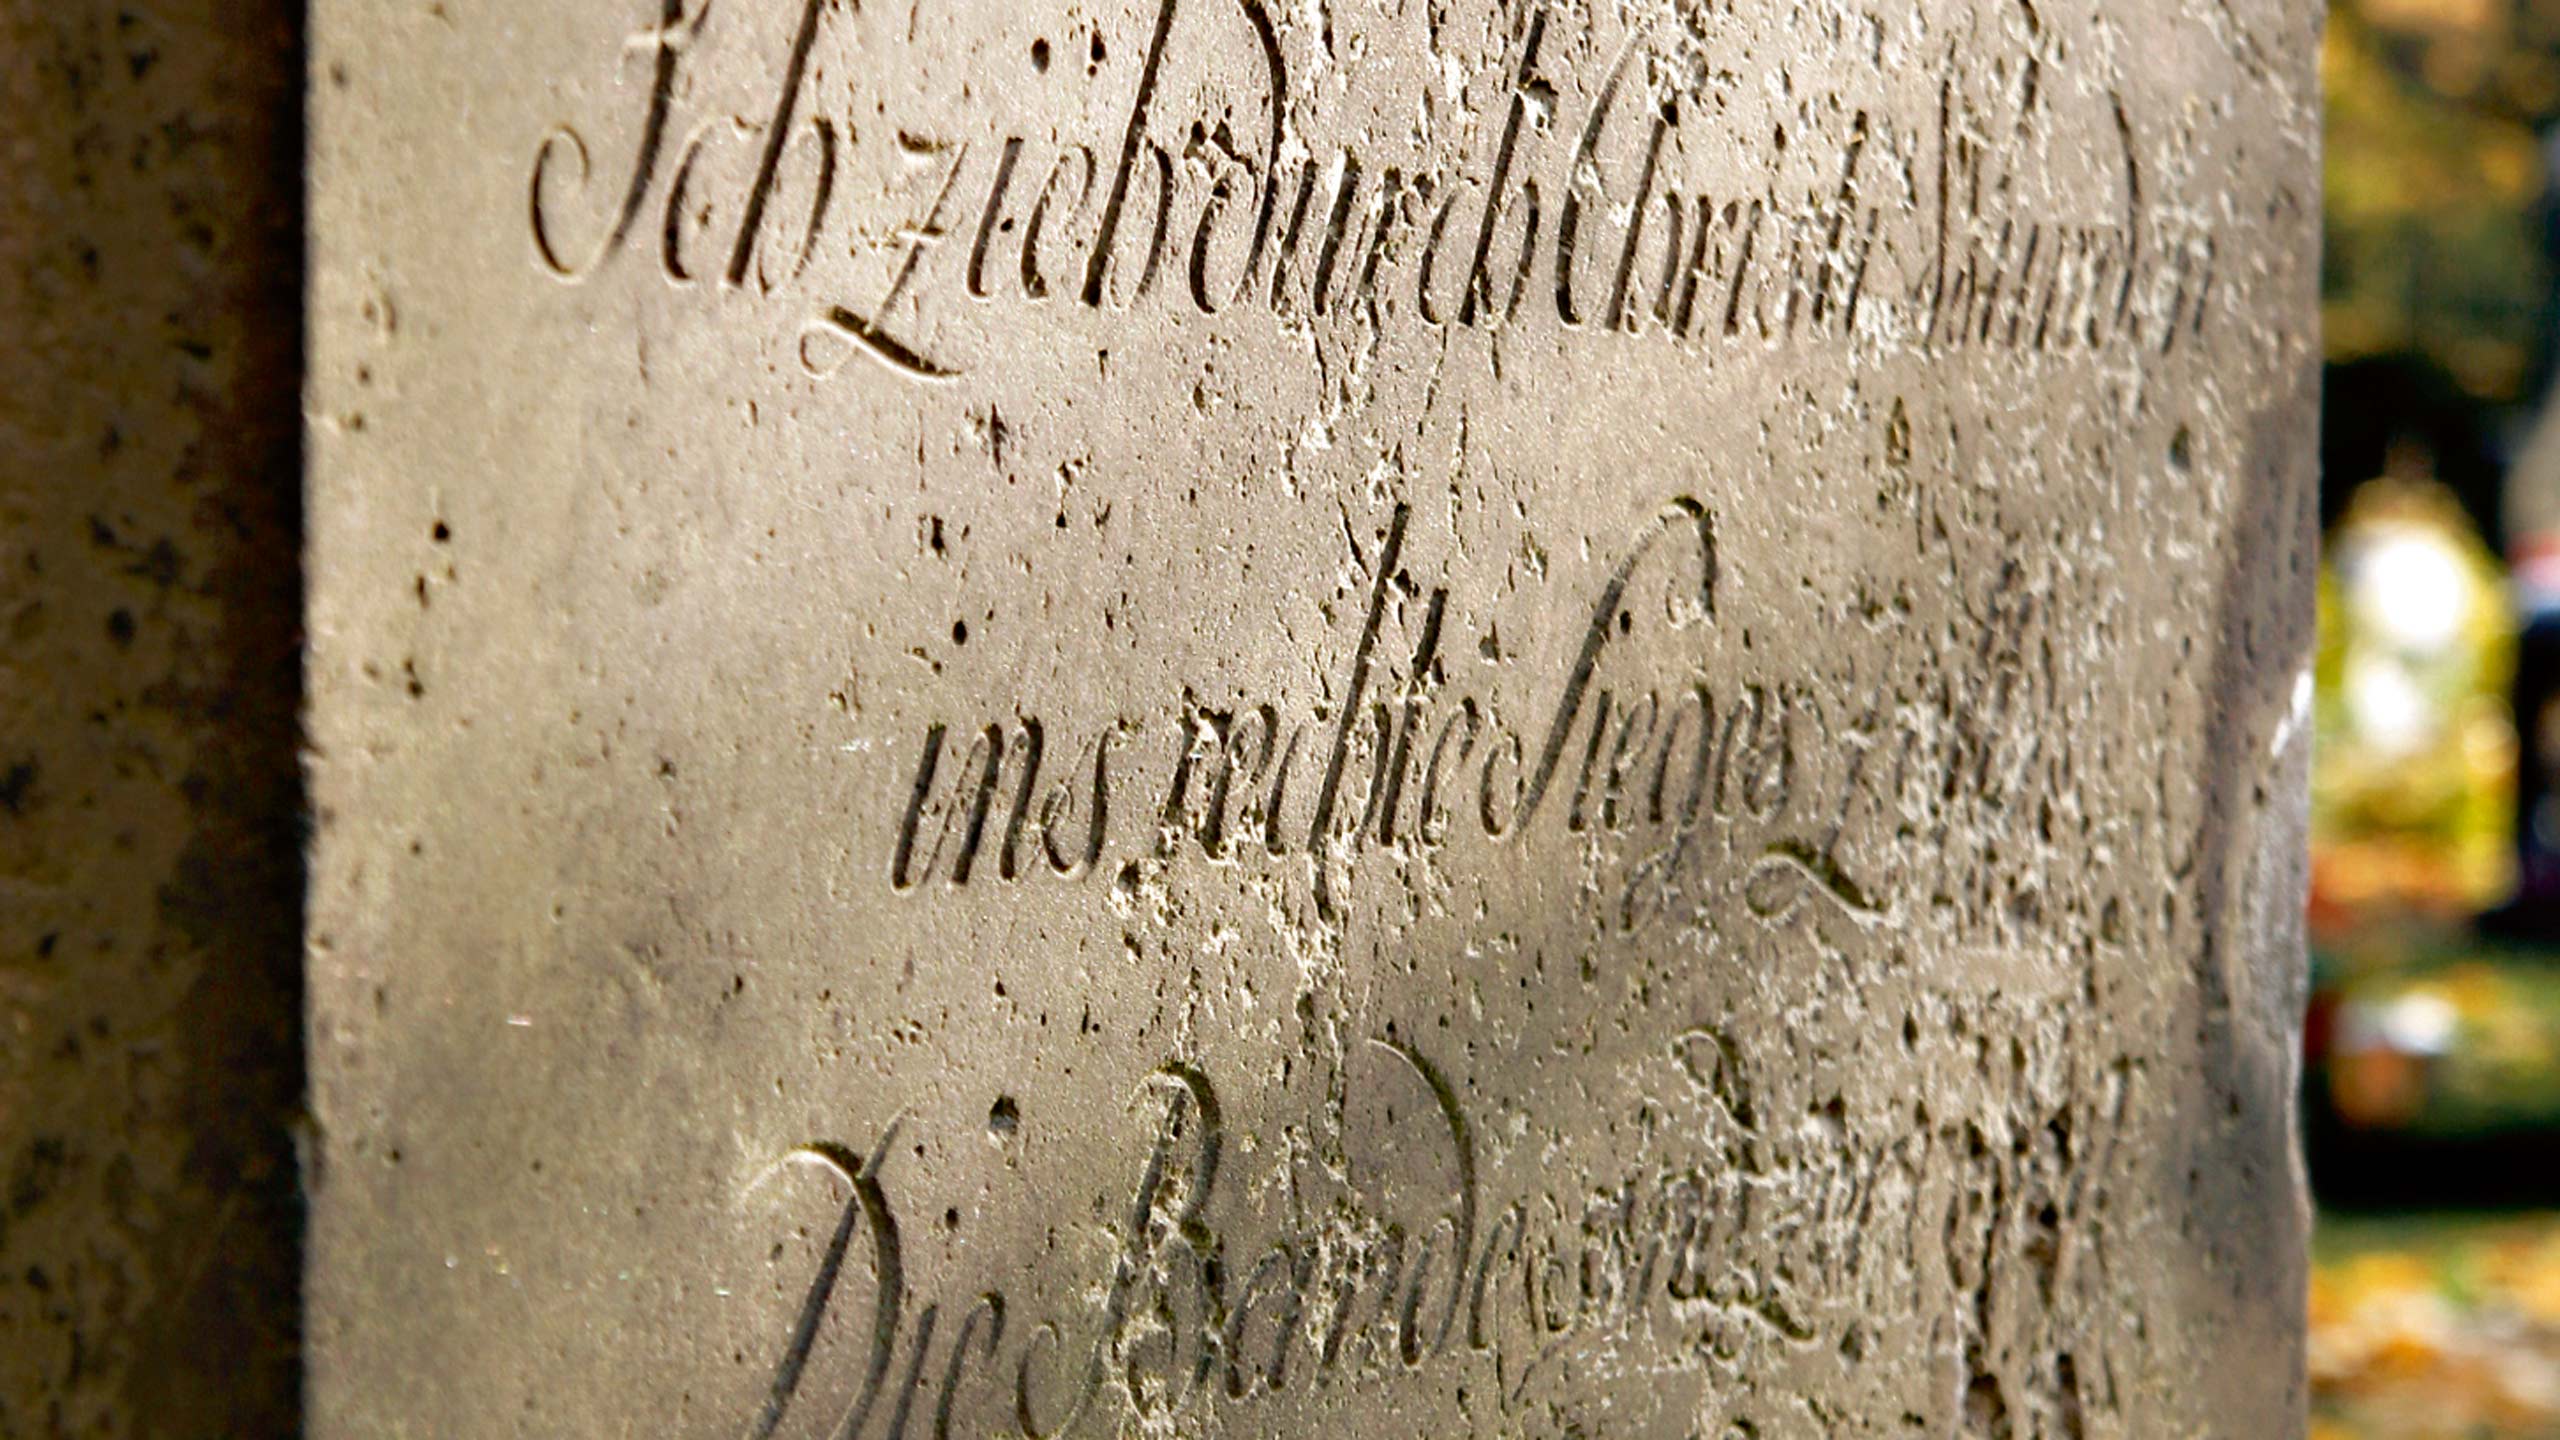 Ich zieh durch Christi Wunden
ins rechte Sieges
Die Bande